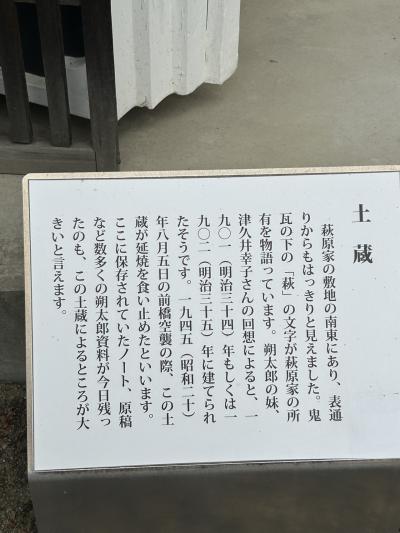 土蔵
萩原家の敷地の南東にあり、表通
りからもはっきりと見えました。鬼
瓦の下の「萩」の文字が萩原家の所
有を物語っています。朔太郎の妹、
津久井幸子さんの回想によると、一
九〇一（明治三十四）年もしくは一
九〇二（明治三十五）年に建てられ
たそうです。一九四五（昭和二十）
年八月五日の前橋空襲の際、この土
蔵が延焼を食い止めたといいます。
ここに保存されていたノート、原稿
など数多くの朔太郎資料が今日残っ
たのも、この土蔵によるところが大
きいと言えます。